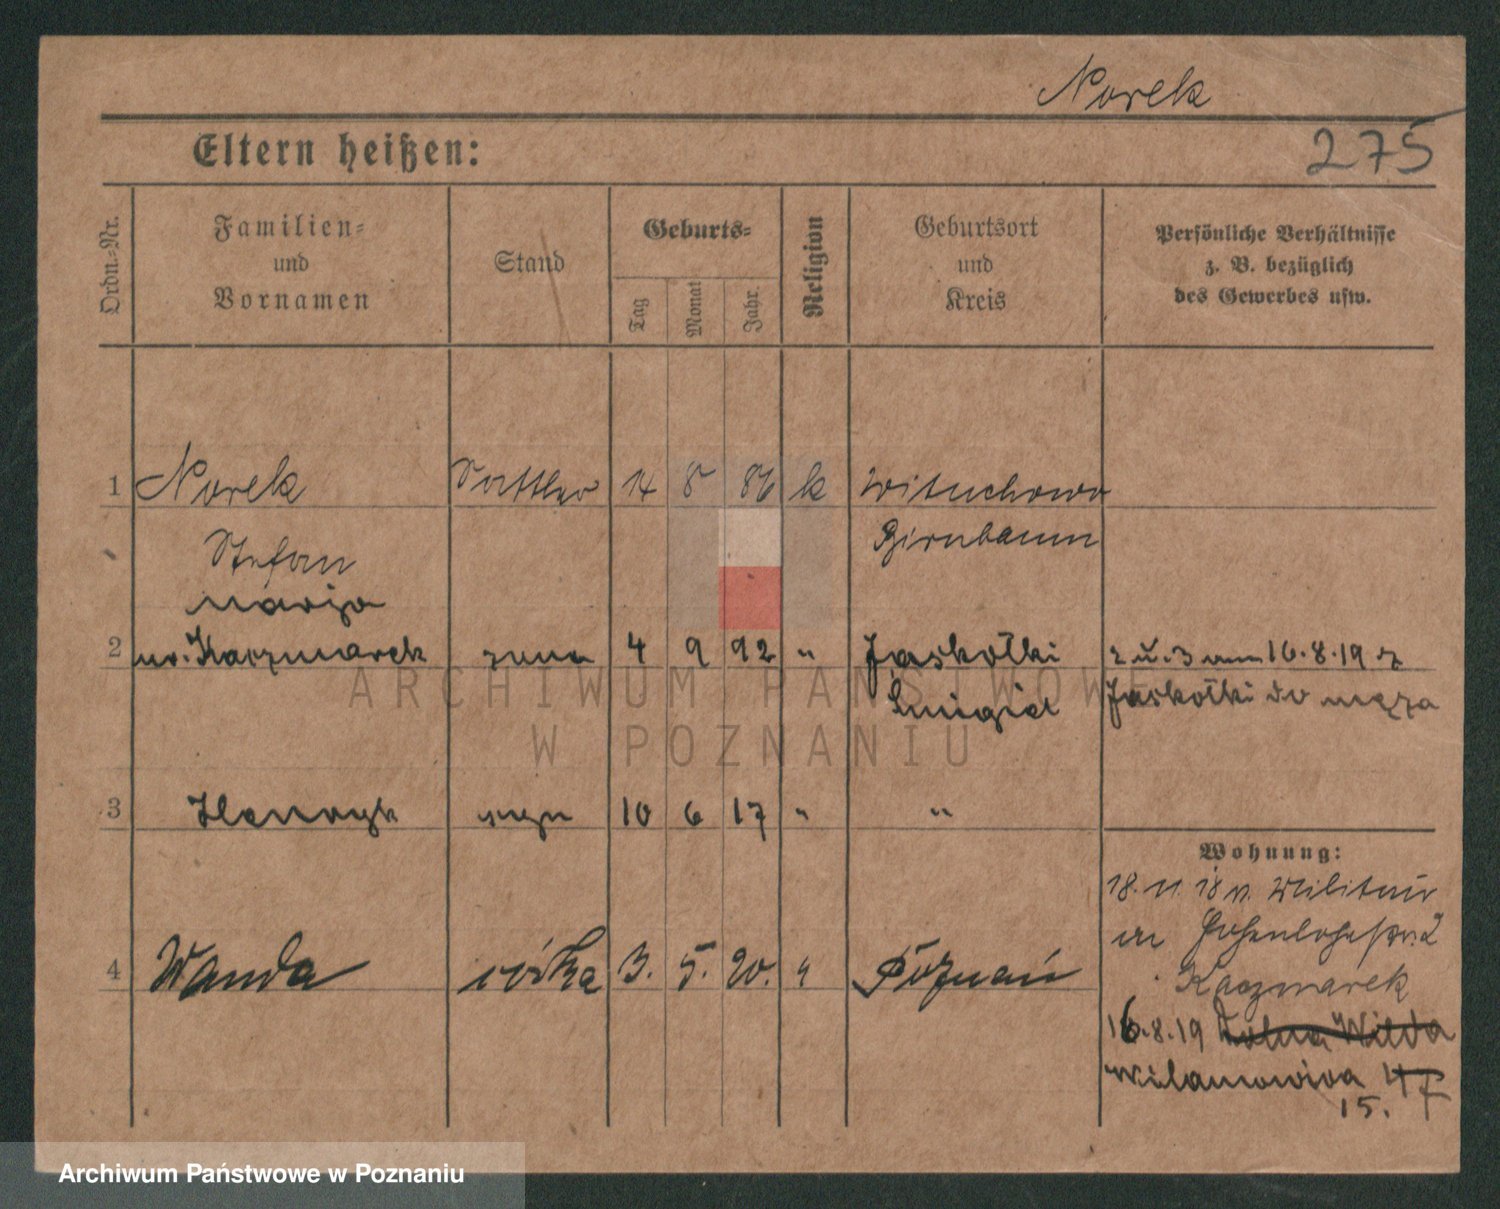 Norek
275
Eltern heißen:
Ordn.-Nr.
Familien-
und
Vornamen
Stand
Geburts-
Tag
Monat
Jahr.
Religion
Geburtsort
und
Kreis
Persönliche Verhältnisse
z. B. bezüglich
des Gewerbes usw.
1 Norek Sattler 14 8 86 k Wituchowo
Stefan Birnbaum
Marja
2 ur. Kaczmarek żona 4 9 92 " Jaskółki 2 u. 3 am 16.8.19 z
Śmigiel Jaskółki do męża
ARCHIWUM PAŃSTWOWE
W POZNANIU
3 Henryk syn 10 6 17 " "
Wohnung:
18. 11. 18 v. Militär
in Hohenlohestr. 2
4 Wanda córka 3. 5. 20. " Poznań
Kaczmarek
16.8.19 Dolna Wilda
15.
Archiwum Państwowe w Poznaniu